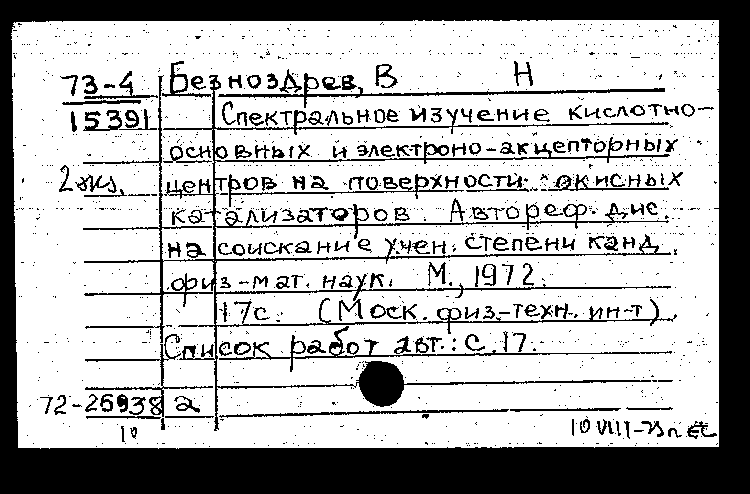 73-4 Безноздрев, В Н
15391 Спектральное изучение кислотно-
основных и электроно-акцепторных
2 экз. центров на поверхности окисных
катализаторов. Автореф. дис.
на соискание учен. степени канд.
физ-мат. наук. М., 1972.
17с. (Моск. физ.-техн. ин-т).
Список работ авт.: с. 17.
72-26938 а
10 10 VIII-73